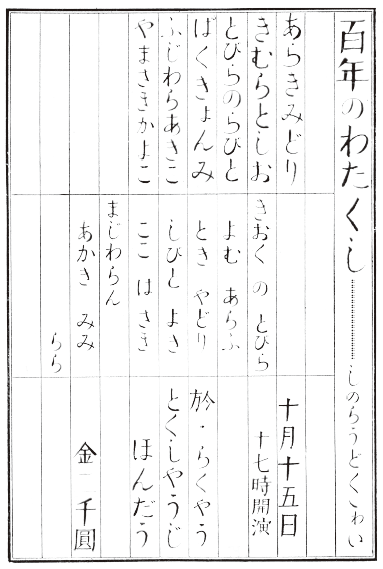 百年のわたくし…………しのらうどくくわい
あらきみどり
きむらとしお
とびらのらびと
ぱくきょんみ
ふじわらあさこ
やまさきかよこ
きおく の とびら
よむ あらふ
とき やどり
しびと よさ
ここ は さき
まじわらん
あかき みみ
らら
十月十五日
十七時開演
於・らくやう
とくしやうじ
ほんだう
金一千圓